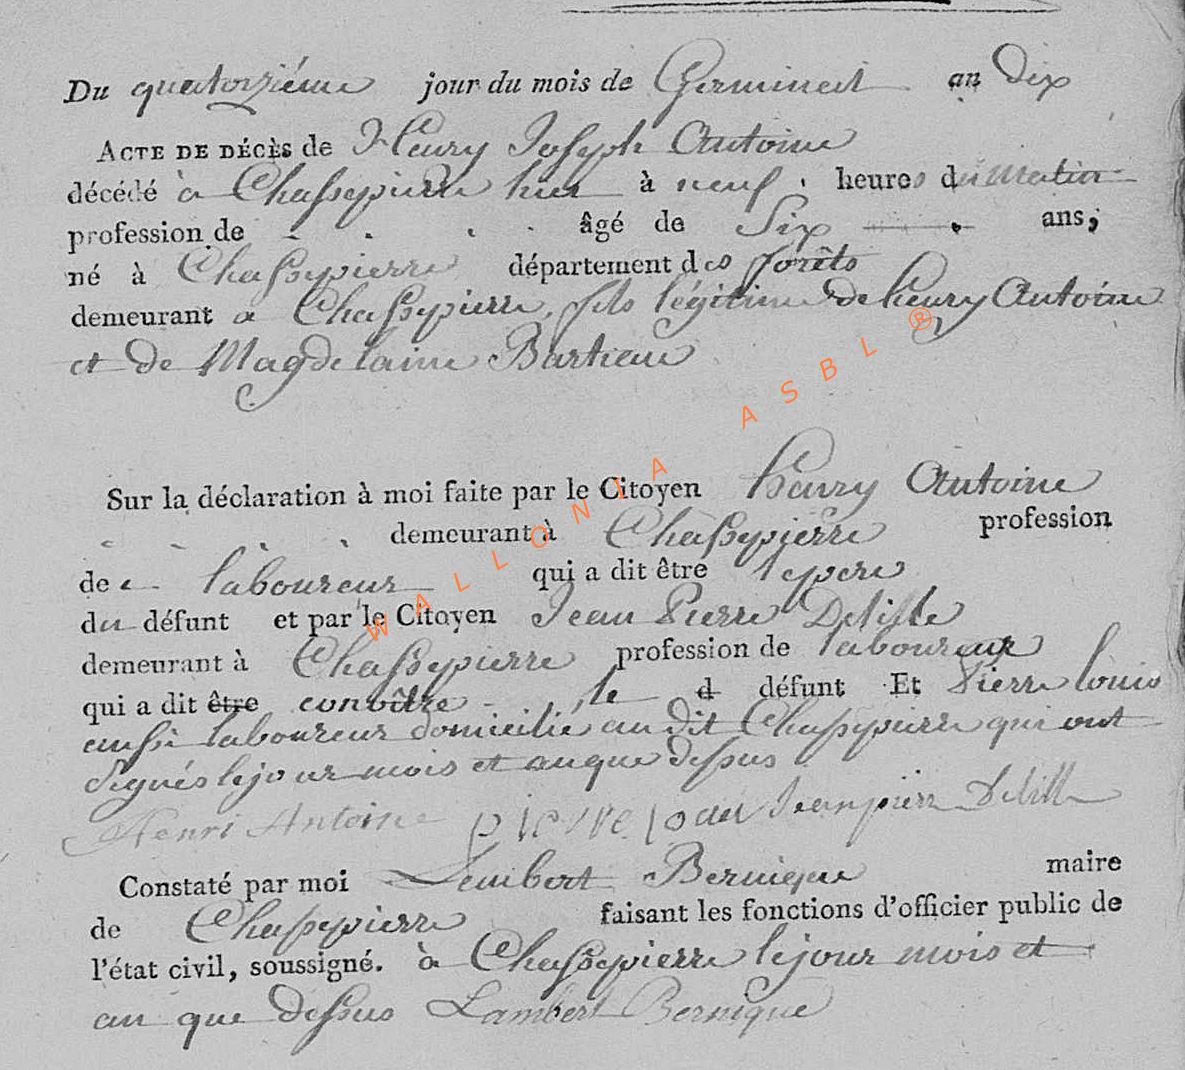 Du quatorziéme jour du mois de Germinal an Dix
ACTE DE DÉCÈS de Henry Joseph Antoine
décédé à Chassepierre hier à neuf heures du matin
profession de âgé de Six ans,
né à Chassepierre département des forêts
demeurant a Chassepierre, fils légitime de henry Antoine
et de Magdelaine
Sur la déclaration à moi faite par le Citoyen henry Antoine
demeurant à Chassepierre profession
de laboureur qui a dit être le pere
du défunt et par le Citoyen Jean Pierre Delille
demeurant à Chassepierre profession de laboureur
qui a dit être connoître le d défunt Et Pierre louis
aussi laboureur domicilié au dit Chassepierre qui ont
Signés le jour mois et an que dessus
Henri Antoine pierre Jean pierre Delille
Constaté par moi Lambert Bernique maire
de Chassepierre faisant les fonctions d'officier public de
l'état civil, soussigné. à Chassepierre le jour mois et
an que dessus Lambert Bernique
WALLONIA ASBL ®